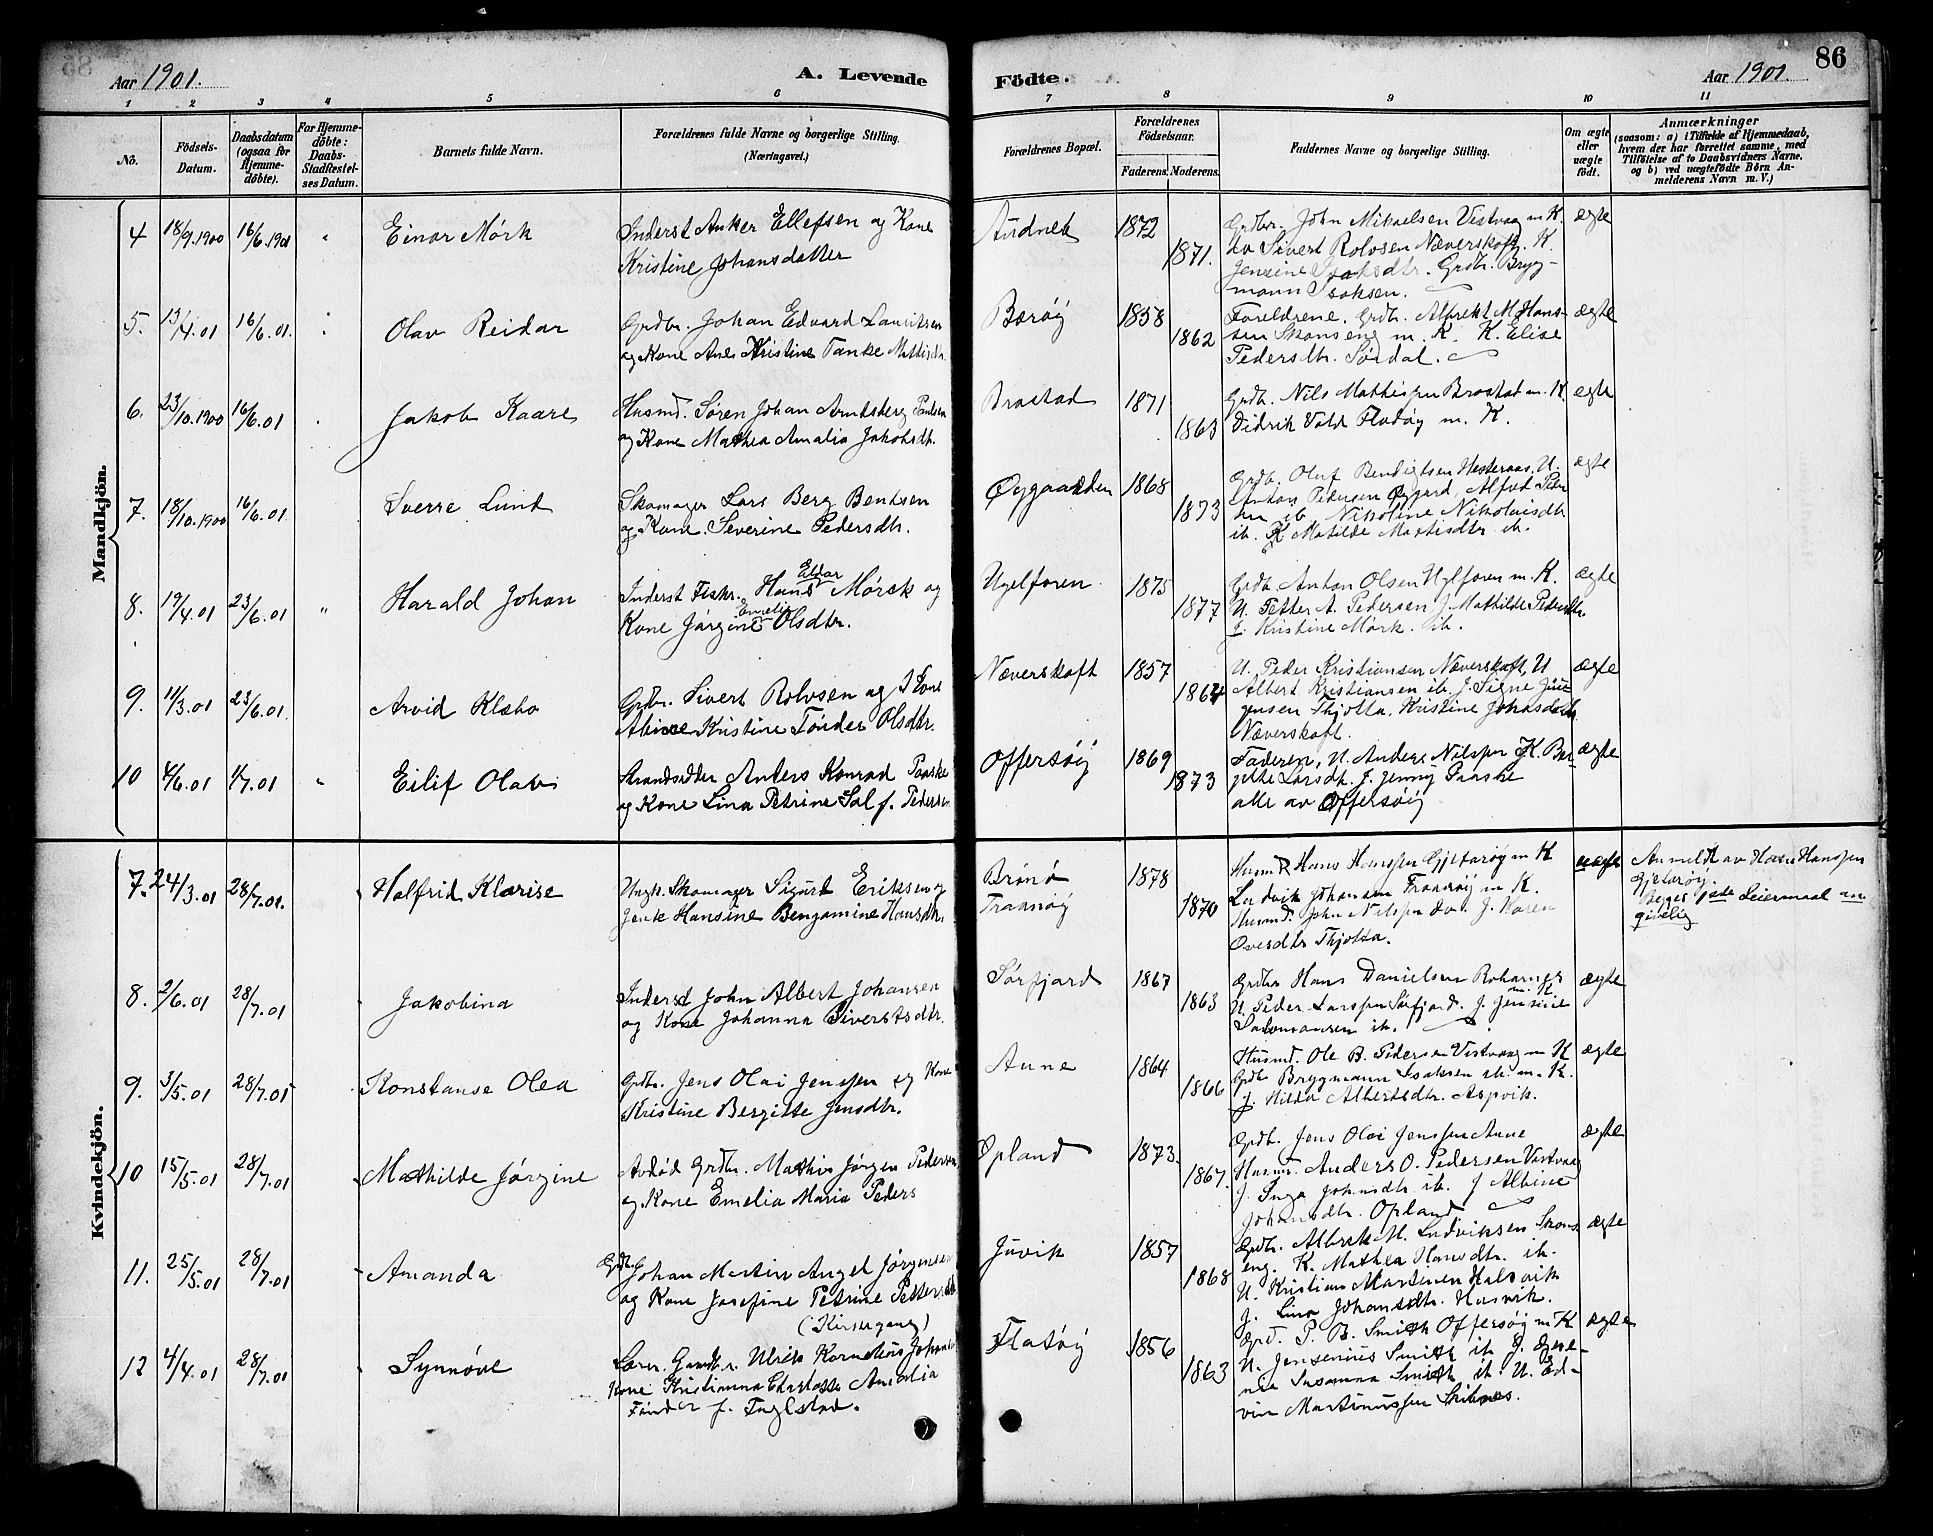 86
Aar 1901.
A. Levende
Födte.
Aar 1901
1 2 3 4 5 6 7 8 9 10 11
No.
Födsels-Datum.
Daabsdatum (ogsaa for Hjemme-döbte).
For Hjemme-döbte: Daabs-Stadfæstel-ses Datum.
Barnets fulde Navn.
Forældrenes fulde Navne og borgerlige Stilling.
(Næringsvei.)
Forældrenes Bopæl.
Forældrenes Födselsaar.
Faderens. Moderens.
Faddernes Navne og borgerlige Stilling.
Om ægte eller uægte födt.
Anmærkninger
(saasom: a) i Tilfælde af Hjemmedaab,
hvem der har forrettet samme, med
Tilföielse af to Daabsvidners Navne,
og b) ved uægtefödte Börn An-
melderens Navn m. V.)
Mandkjön.
4 18/9.1900 16/6.1901 Einar Mörk
Inderst Anker Ellefsen og Kone
Kristine Johansdatter
Audnek 1872 1871.
Grdbr. John Mikaelsen Vestvaag m K
do Sivert Rolvsen Næverskoft. K.
Jensine Isaksdtr. Grdbr. Bryg-
mann Isaksen.
ægte
5. 13/4.01 16/6.01. Olav Reidar
Grdbr. Johan Edvard Lauritsen
og Kone Anes Kristine Tanke Mattisdtr.
Barøy 1858 1862
Foreldrene, Grdbr. Albrekt M. Hans-
sen Skonseng m. K. K. Elise
Pedersdtr. Sördal.
ægte
6. 23/10.1900 16/6.01 Jakob Kaare
Husmd. Sören Johan Arntsberg Paulsen
og Kone Mathea Amalia Jakobsdtr.
Brastad 1871 1863
Grdb. Nils Mathisen Brastad m. K
Didrik Vold Flatöy m. K.
ægte
7. 18/10.1900 16/6.01 Sverre Lund
Skomager Lars Berg Bentsen
og Kone. Severine Pedersdtr.
Øygaarden 1868 1873
Grdb. Oluf Bendigtsen Hesteraas, U.
Anton Pedersen Øygard, Alfred Peder
sen ib Nikoline Nikolaisdtr
ib. K Matilde Martisdtr ib.
ægte
8. 19/4.01 23/6.01 Harald Johan
Inderst Fiskr. Hans Eldar Mörsk og
Kone Jörgine Emelie Olsdtr.
Uglforen 1875 1877
Grdb Anton Olsen Uglforen m. K.
U. Petter A. Pedersen J. Mathilde Pedersdtr
J. Kristine Mörk. ib.
ægte
9. 11/3.01 23/6.01. Arvid Klæbo
Grdbr. Sivert Rolvsen og Kone
Abine Kristine Tönder Olsdtr.
Næverskoft 1857 1864
U. Peder Kristiansen Næverskoft, U
Albert Kristiansen ib. J. Signe Jör
gensen Thjotta, Kristine Johansdatr
Næverskoft.
ægte
10 4/6.01 4/7.01 Eilif Olav
Strandsidder Anders Konrad Paaske
og Kone Lina Petrine Sal f. Pedersen
Offersöy 1869 1873
Faderen, U. Anders Nilssen K. Ber-
gitte Larsdtr. J. Jenny Paaske
alle av Offersöy
ægte
Kvindekjön.
7. 24/3.01 28/7.01. Halfrid Klarise
Ungk. Skomager Sigurd Eriksen og
Jente Hansine Benjamine Hansdtr.
Brönö Tranöy 1878 1870
Husmd Hans Hanssen Gjeteröy m K
Ludvik Johansen Tranöy m K.
Husmd. John Nilssen do. J. Karen
Oversdtr Thjotta.
uægte
Anmeldt av Hans Hanssen
Gjeteröy.
Begges 1ste Leiermaal an-
givelig
8. 2/6.01 28/7.01 Jakobina
Inderst John Albert Johansen
og Kone Johanna Siversdtr.
Sörfjord 1867 1863
Grdbr Hans Danielsen Roharnes m. K
U. Peder Larssen Sörfjord. J. Jensine
Salomonsen ib.
ægte
9. 3/5.01 28/7.01 Konstanse Olea
Grdbr. Jens Olai Jenssen og Kone
Kristine Bergitte Jensdtr.
Aune 1864 1866
Husmd. Ole B. Pedersen Vestvaag m K
Grdb Brygmann Isaksen ib. m. K.
J. Hilda Albertsdtr. Aspvik.
ægte
10 15/5.01 28/7.01 Mathilde Jörgine
Avdöd Grdbr. Mathis Jörgen Pedersen
og Kone Emelia Maria Peders
Opland 1873. 1867.
Grdb. Jens Olai Jenssen Aune
Husmd. Anders O. Pedersen Vestvaag
J. Inga Johansdtr ib. J Albine
Johansdtr. Opland
ægte
11. 25/5.01 28/7.01 Amanda
Grdb. Johan Martin Angel Jörgensen
og Kone Josefine Petrine Pettersdtr
Juvik 1857 1868
Grdbr. Albrek M. Ludviksen Skons
eng. K. Mathea Hansdtr. ib.
U. Kristian Martinen Halsvik
J. Lina Johansdtr. Husvik.
ægte
12 4/4.01 28/7.01 Synnöve
(Kirsegang)
Lær. Gaardbr. Ulrik Kornelius Johansen
Kone Kristianna Charlotte Amalia
Tönder f. Fuglstad.
Flatöy 1856 1863
Grd. P. B. Smith Offersöy m K
U. Jensenius Smith ib J. Gene-
via Susanna Smith ib. U. Ed-
vin Martinussen Skibnes.
ægte